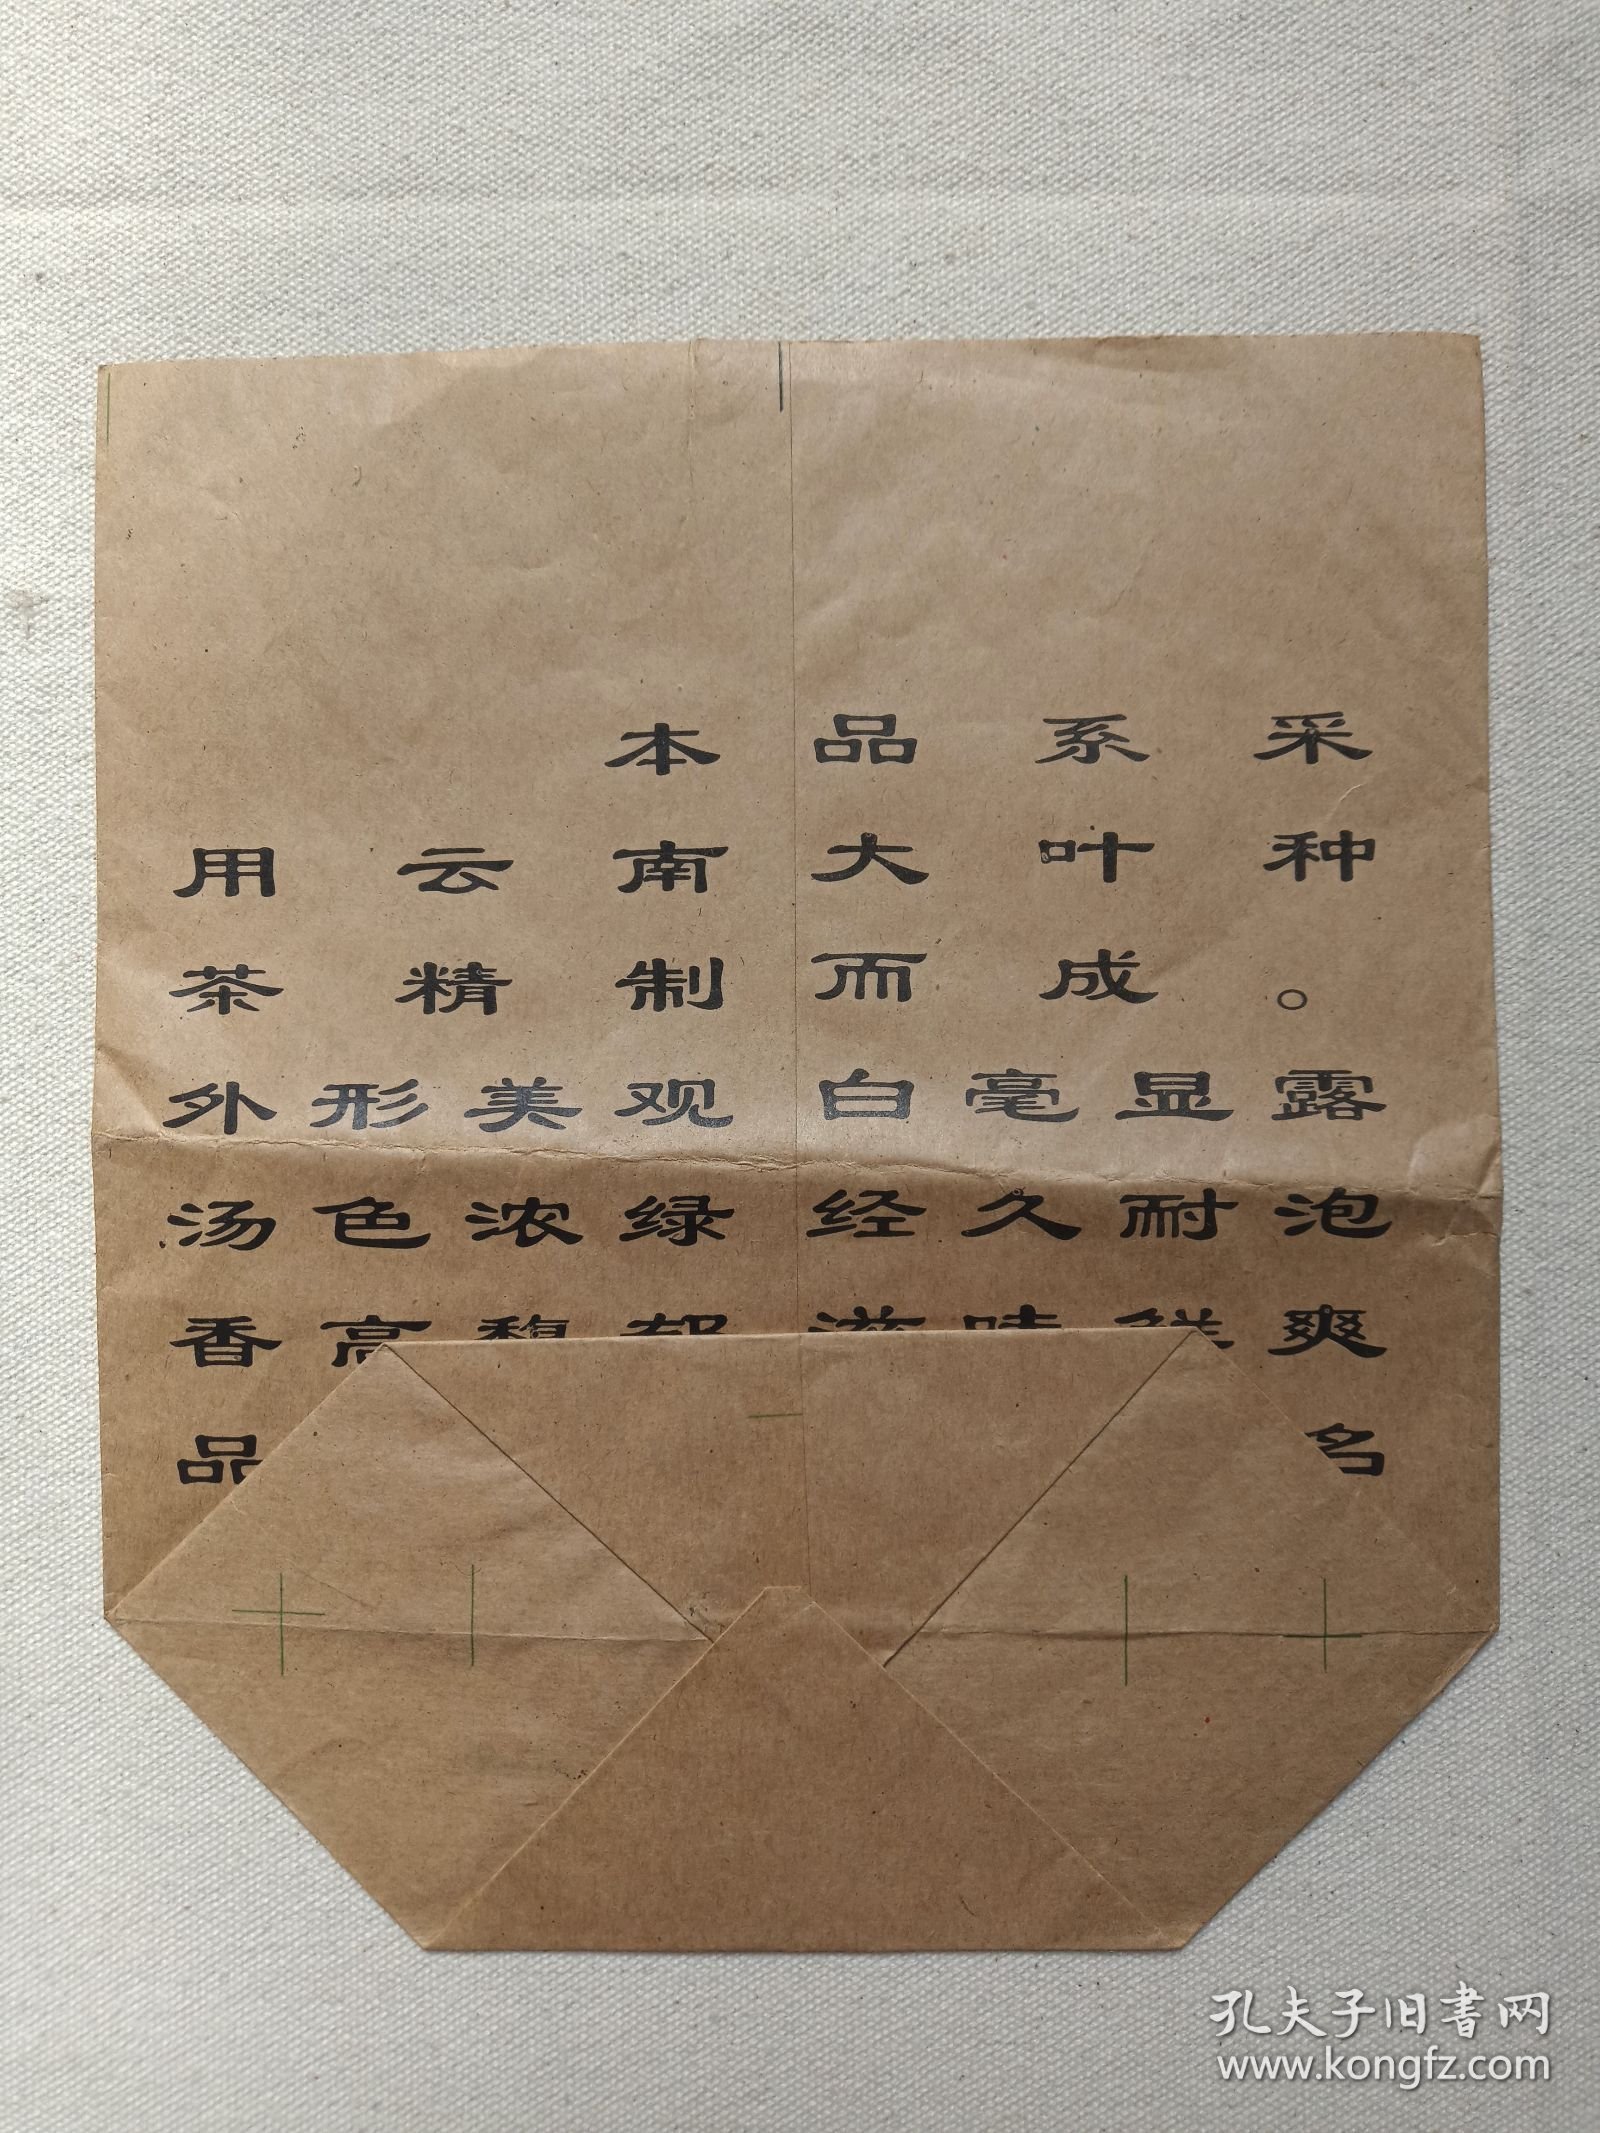 本品系采
用云南大叶种
茶云精制而成。
外形美观 白毫显露
汤色浓绿 经久耐泡
香高馥郁 滋味鲜爽
品 名
孔夫子旧书网
www.kongfz.com